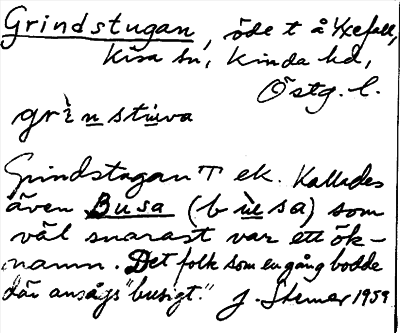 Grindstugan, öde t å Yxefall,
Kisa sn, Kinda hd,
Östg. l.
grìnstuva
Grindstugan T ek. Kallades
även Busa (bùsa) som
väl snarast var ett ök-
namn. Det folk som en gång bodde
där ansågs "busigt." J. Stener 1959